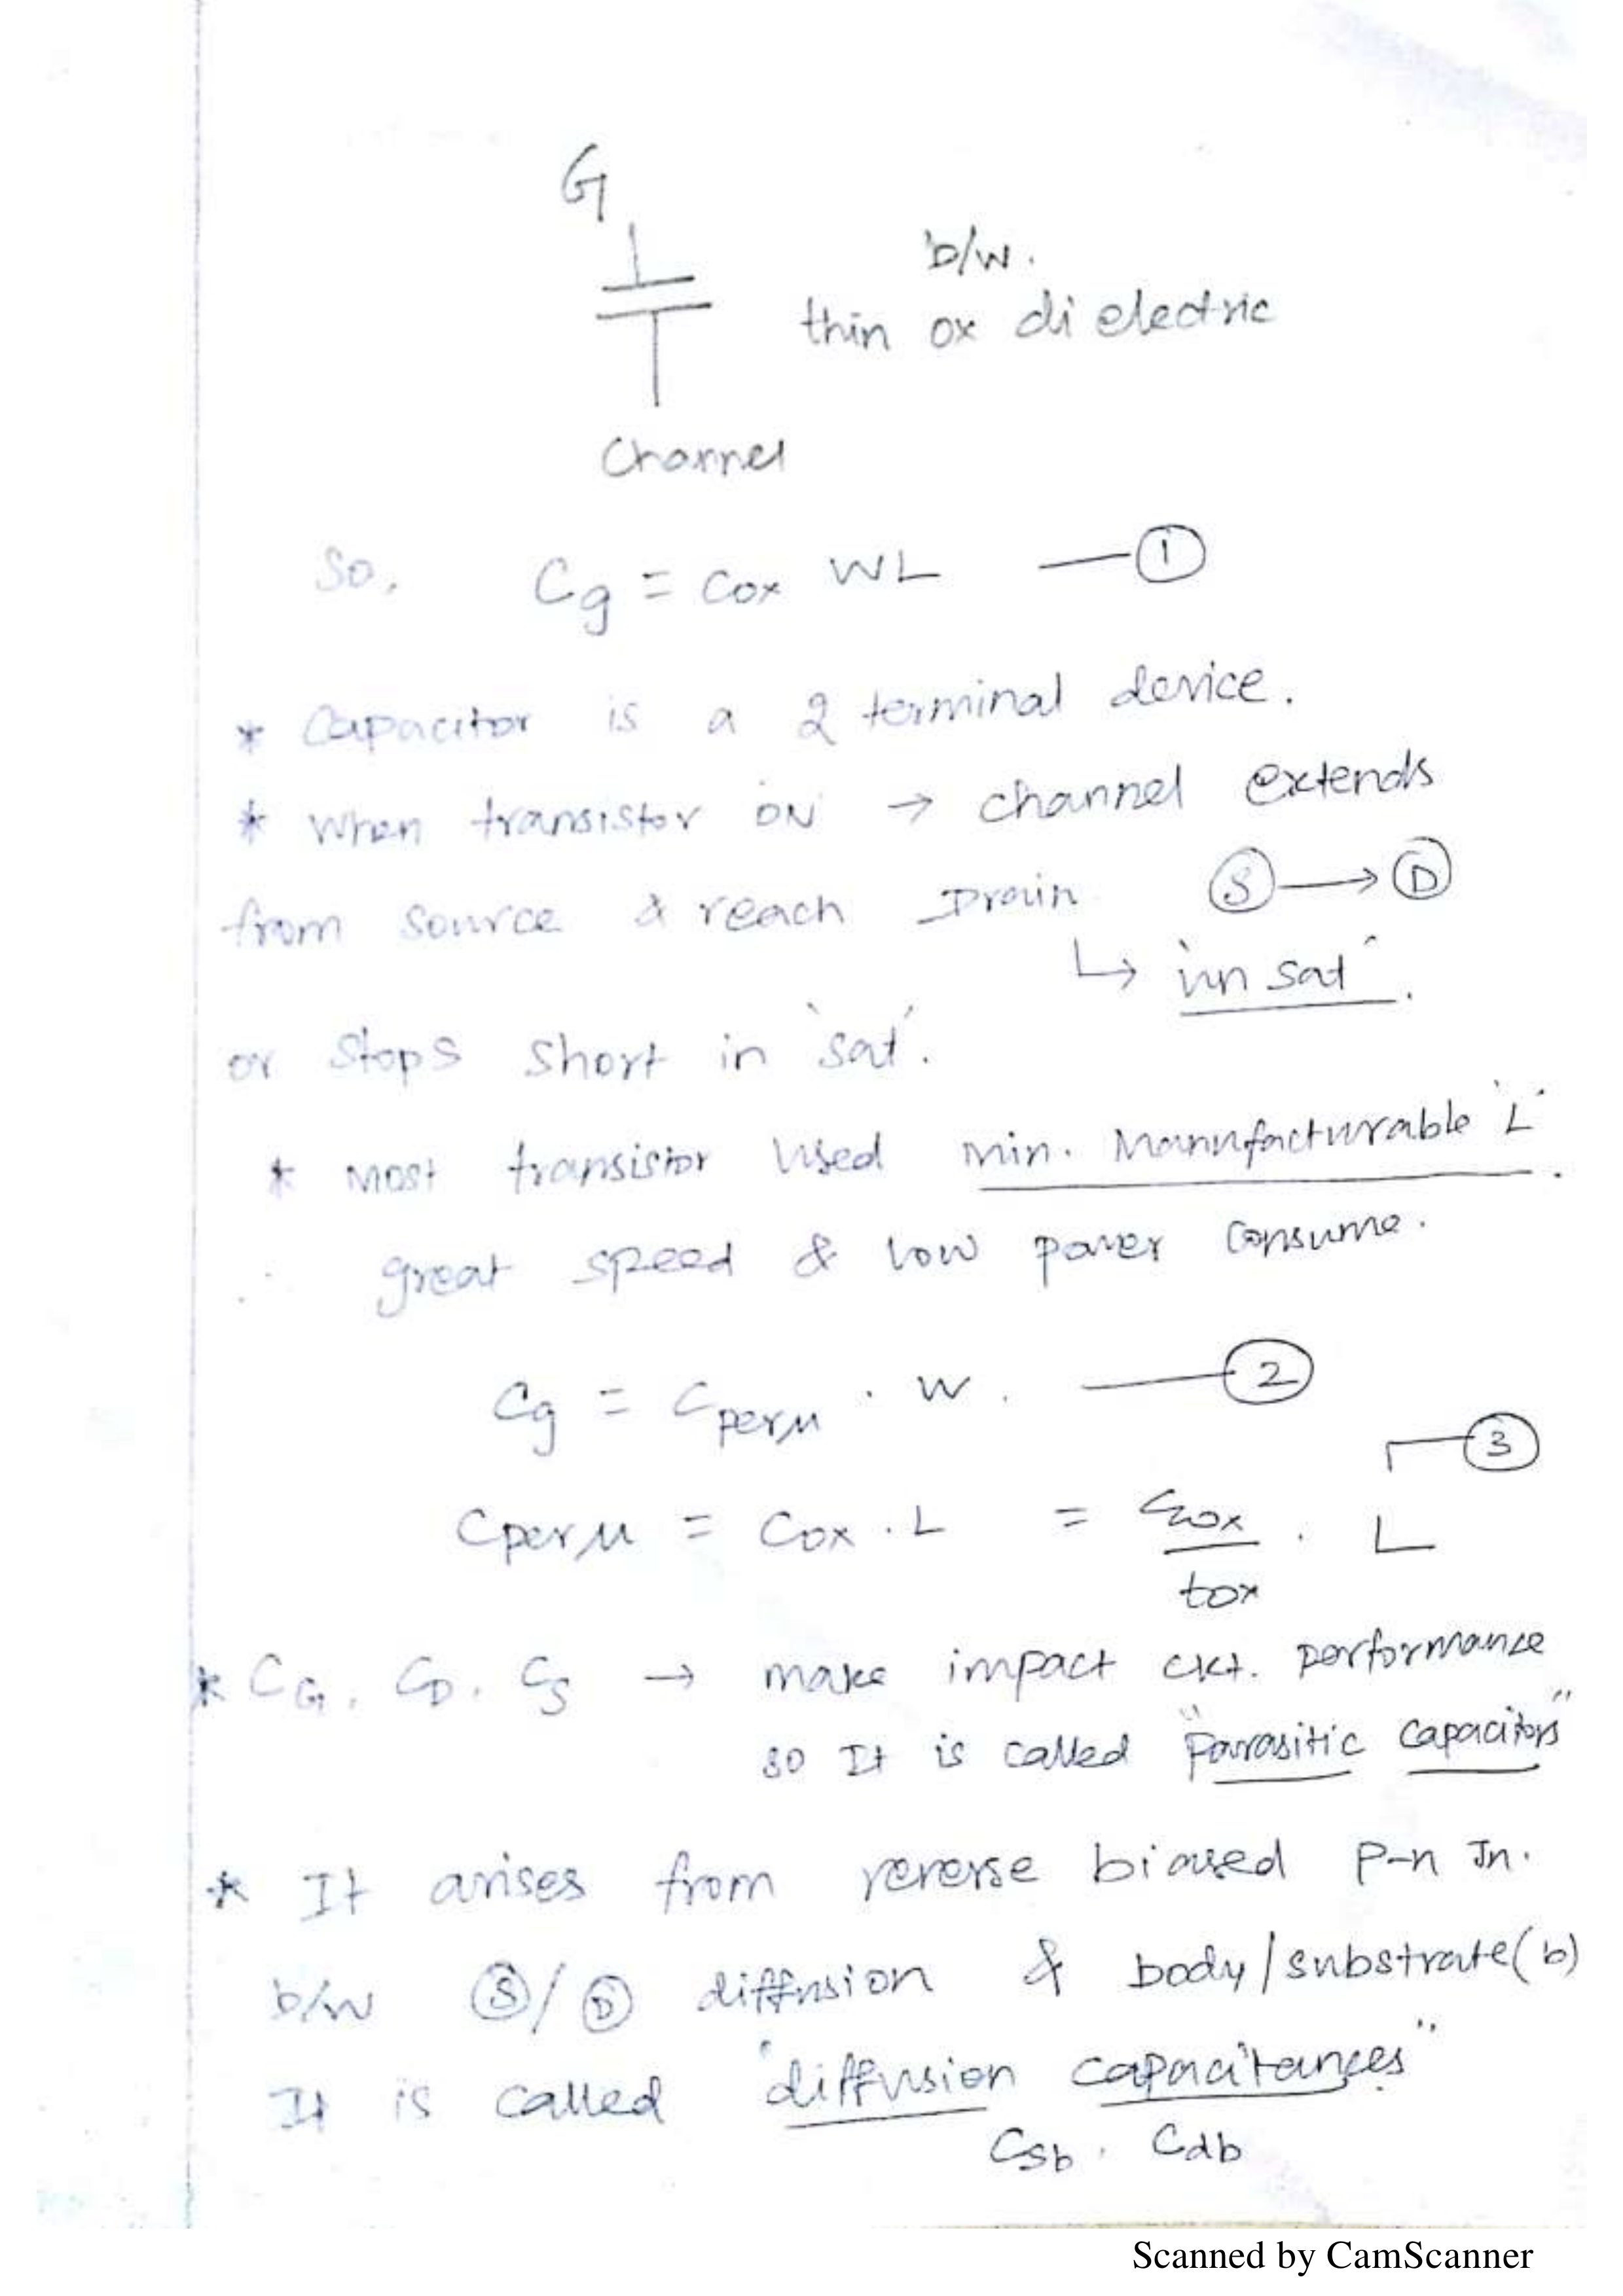 G
b/w.
thin ox di electric
Channel
So, Cg = Cox WL — ①
* Capacitor is a 2 terminal device.
* When transistor ON → channel extends
from source & reach Drain Ⓢ → Ⓓ
↳ 'un sat'.
or stops short in 'sat'.
* Most transistor used min. Manufacturable 'L'.
great speed & low power consume.
Cg = Cperμ . W. — ②
③
Cperμ = Cox . L = εox/tox . L
* CG, CD, CS → make impact ckt. performance
so It is called "Parasitic capacitors"
* It arises from reverse biased P-n Jn.
b/w Ⓢ/Ⓓ diffusion & body/substrate(b)
It is called "diffusion capacitances"
Csb, Cdb
Scanned by CamScanner